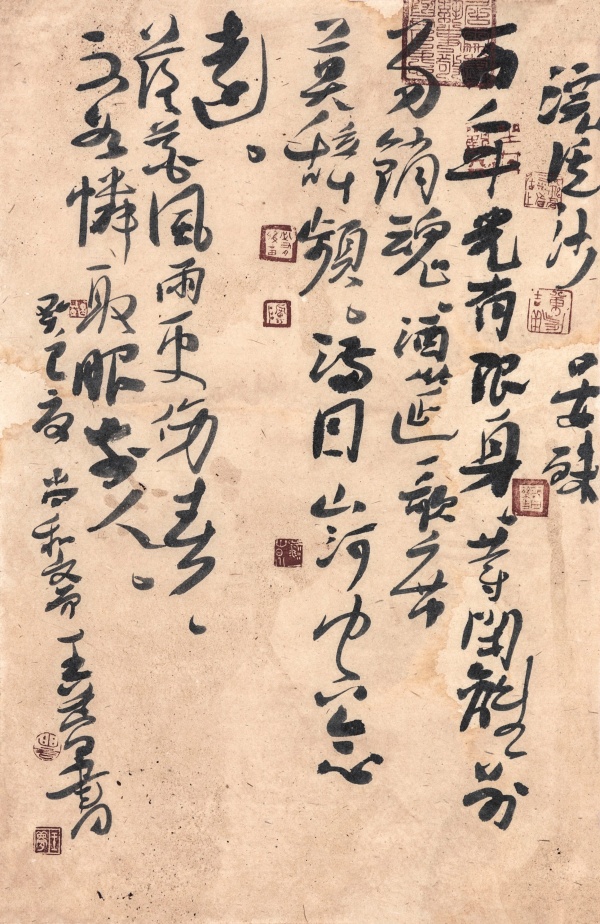 浣溪沙 晏殊
一向年光有限身、等閑離別
易銷魂、酒筵歌席
莫辭頻、滿目山河空念
遠。
落花風雨更傷春、
不如憐取眼前人、
癸巳夏 尚和 王 書